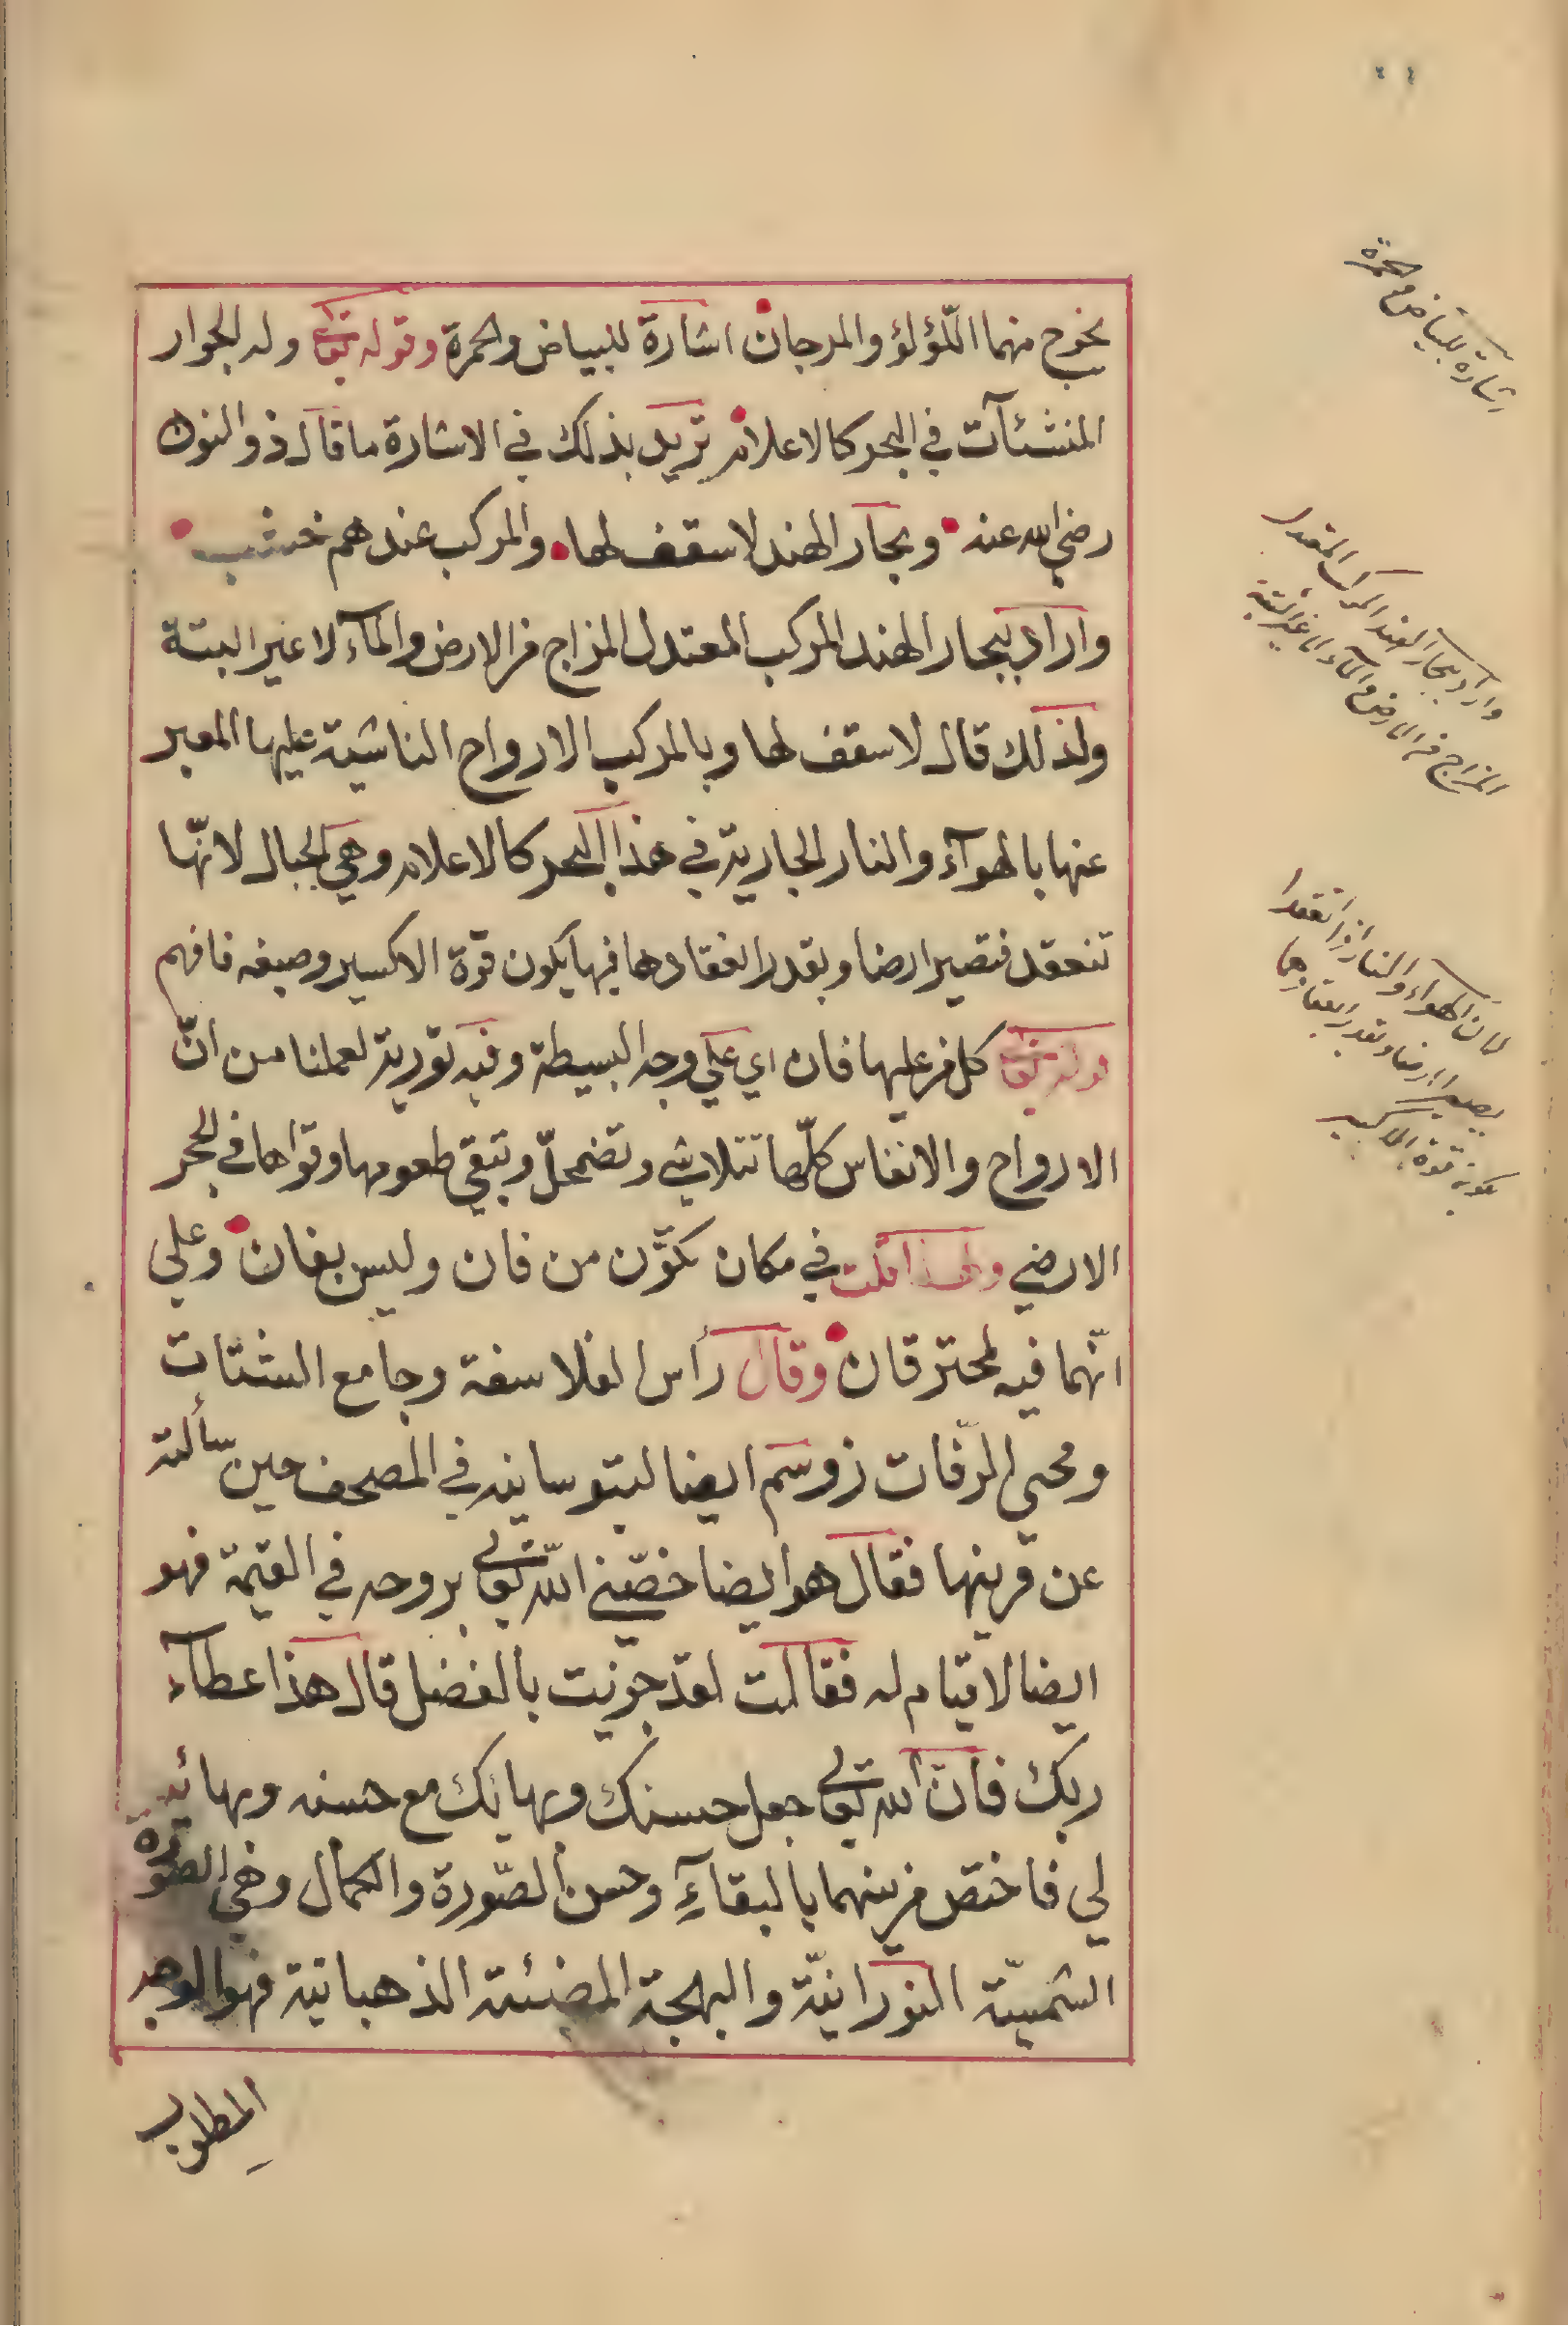 يخرج منهما اللّؤلؤ والمرجان اشارة للبياض والحمرة وقوله تعالى وله الجوار
المنشئآت في البحر كالاعلام تريد بذلك في الاشارة ما قال ذو النون
رضي الله عنه وبحار الهند لا سقف لها والمركب عندهم خشب
واراد ببحار الهند المركب المعتدل المزاج من الارض والمآء لا غير البتة
ولذلك قال لا سقف لها وبالمركب الارواح الناشية عليها المعبر
عنها بالهوآء والنار الجارية في هذا البحر كالاعلام وهي الجبال لانّها
تنعقد فتصير ارضا وبقدر انعقادها فيها يكون قوة الاكسير وصبغه فافهم
قوله تعالى كل من عليها فان اي علي وجه البسيطة وفيه تورية لعملنا من انّ
الارواح والانفاس كلّها تتلاشي وتضمحلّ وتبقي طعومها وقواها في الحجر
الارضي ولهذا قلت في مكان تكوّن من فان وليس بفان وعلي
انّهما فيه لمحترقان وقال رأس الفلاسفة وجامع الشتات
ومحيي الرّفات زوسم ايضا لبتوسايه في المصحف حين سألته
عن قرينها فقال هو ايضا خصّني الله تعالى بروحه في القيمة فهو
ايضا لا قيام له فقالت لقد جوزيت بالفضل قال هذا عطآء
ربك فان الله تعالى جعل حسنك وبهائك مع حسنه وبهائه
لي فاختص من بينهما بالبقآءِ وحسن الصّورة والكمال وهي الصورة
الشمسيّة النورانيّة والبهجة المضئة الذهبانية فهو الوجه
المطلوب
اشارة للبياض والحمرة
واراد ببحار الهند المركب المعتدل
المزاج من الارض والمآء لا غير البتة
لان الهواء والنار اذا انعقدا
يصير ارضا وبقدر انعقادها
يكون قوة الاكسير